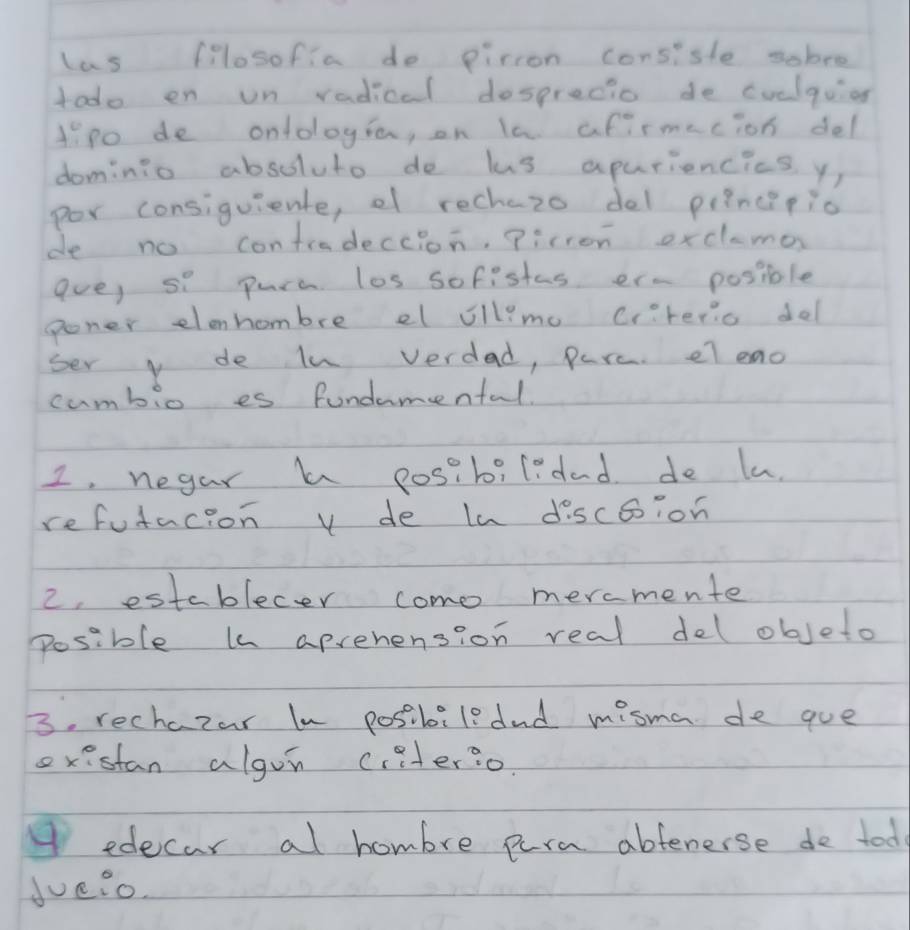 las filosofía de pirron consiste sobre
todo en un radical desprecio de cualquier
tipo de ontología, en la afirmacion del
dominio absoluto de las apariencias y,
por consiguiente, el rechazo del principio
de no contradeccion. Pirron exclama
que, si para los sofistas era posible
poner elenhombre el último criterio del
ser y de la verdad, para el
cambio es fundamental.
1. negar la posibilidad de la
refutación y de la discusion
2. establecer como meramente
posible la aprehensión real del objeto
3. rechazar la posibilidad misma de que
existan algún criterio.
4 edecar al hombre para abtenerse de tod
Jucio.